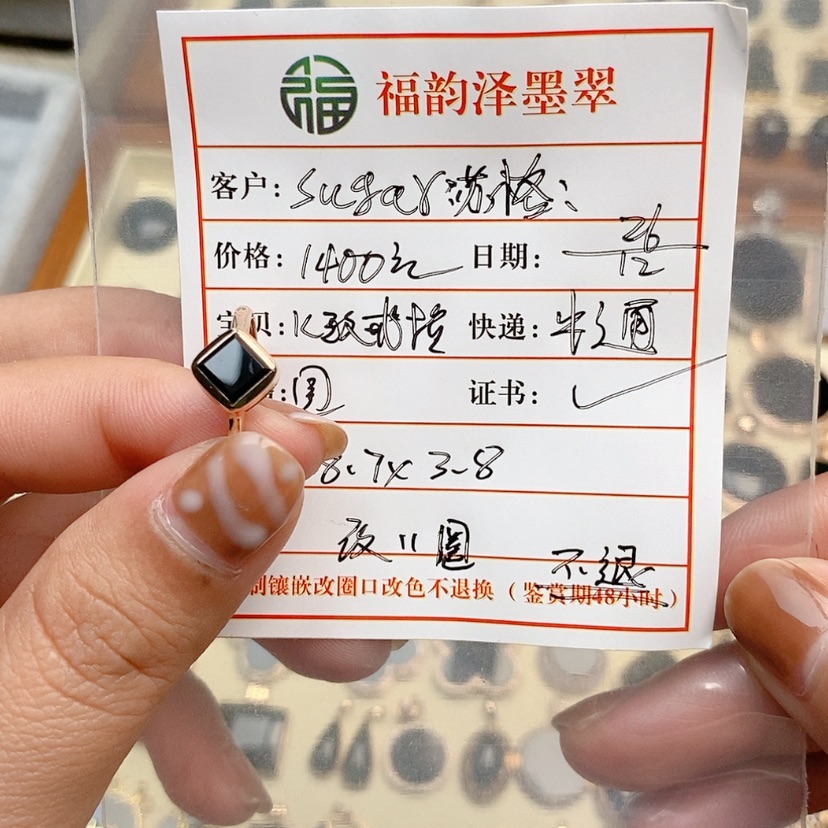 福 福韵泽墨翠
客户: sugar苏格:
价格: 1400元 日期: 26/12
贝: K 快递: 圆通
证书: ✓
8.7x 3-8
改11圈
不退
制镶嵌改圈口改色不退换（鉴赏期48小时）